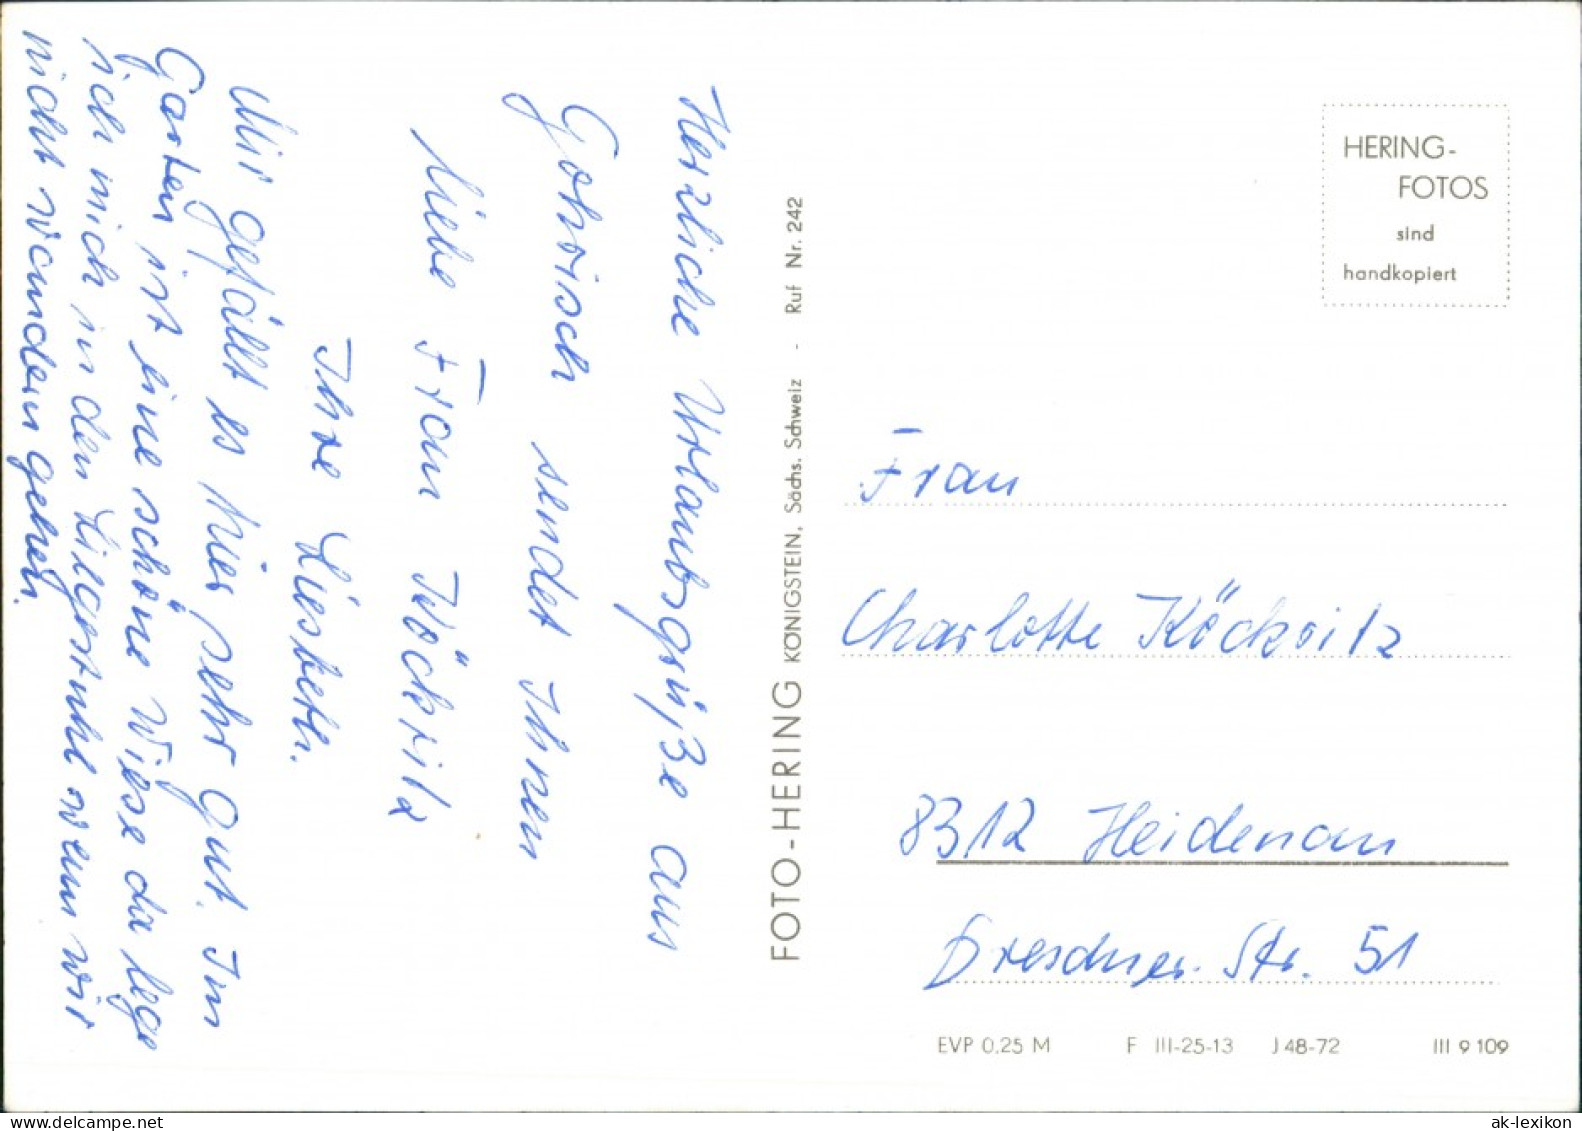 Herzliche Urlaubsgrüße aus
Gohrisch sendet Ihnen
liebe Frau Köckritz
Ihre Liesbeth.
Mir gefällt es hier sehr gut. Im
Garten ist eine schöne Wiese da lege
ich mich in den Liegestuhl wenn wir
nicht wandern gehen.
FOTO-HERING KÖNIGSTEIN, Sächs. Schweiz - Ruf Nr. 242
HERING-
FOTOS
sind
handkopiert
Frau
Charlotte Köckritz
8312 Heidenau
Dresdner. Str. 51
EVP 0,25 M F III-25-13 J 48-72 III 9 109
ak-lexikon